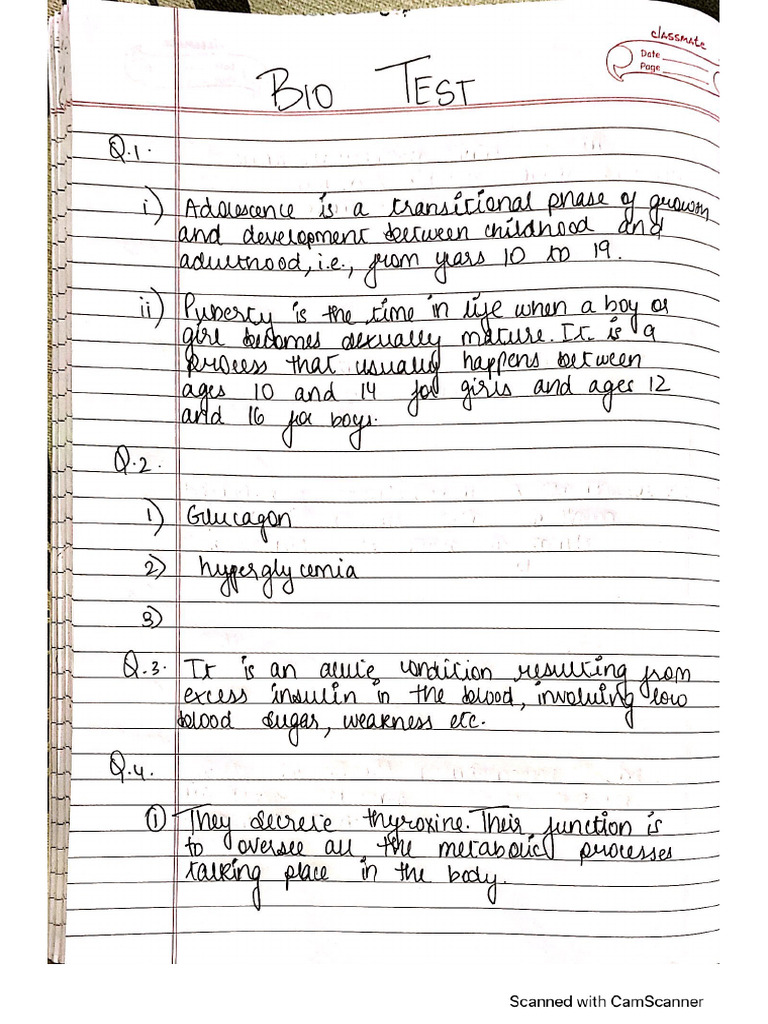 classmate
Date
Page
BIO TEST
Q.1.
i) Adolescence is a transitional phase of growth
and development between childhood and
adulthood, i.e., from years 10 to 19.
ii) Puberty is the time in life when a boy or
girl becomes sexually mature. It is a
process that usually happens between
ages 10 and 14 for girls and ages 12
and 16 for boys.
Q.2.
1) Glucagon
2) hyperglycemia
3)
Q.3. It is an acute condition resulting from
excess insulin in the blood, involving low
blood sugar, weakness etc.
Q.4.
① They secrete thyroxine. Their function is
to oversee all the metabolic processes
talking place in the body.
Scanned with CamScanner